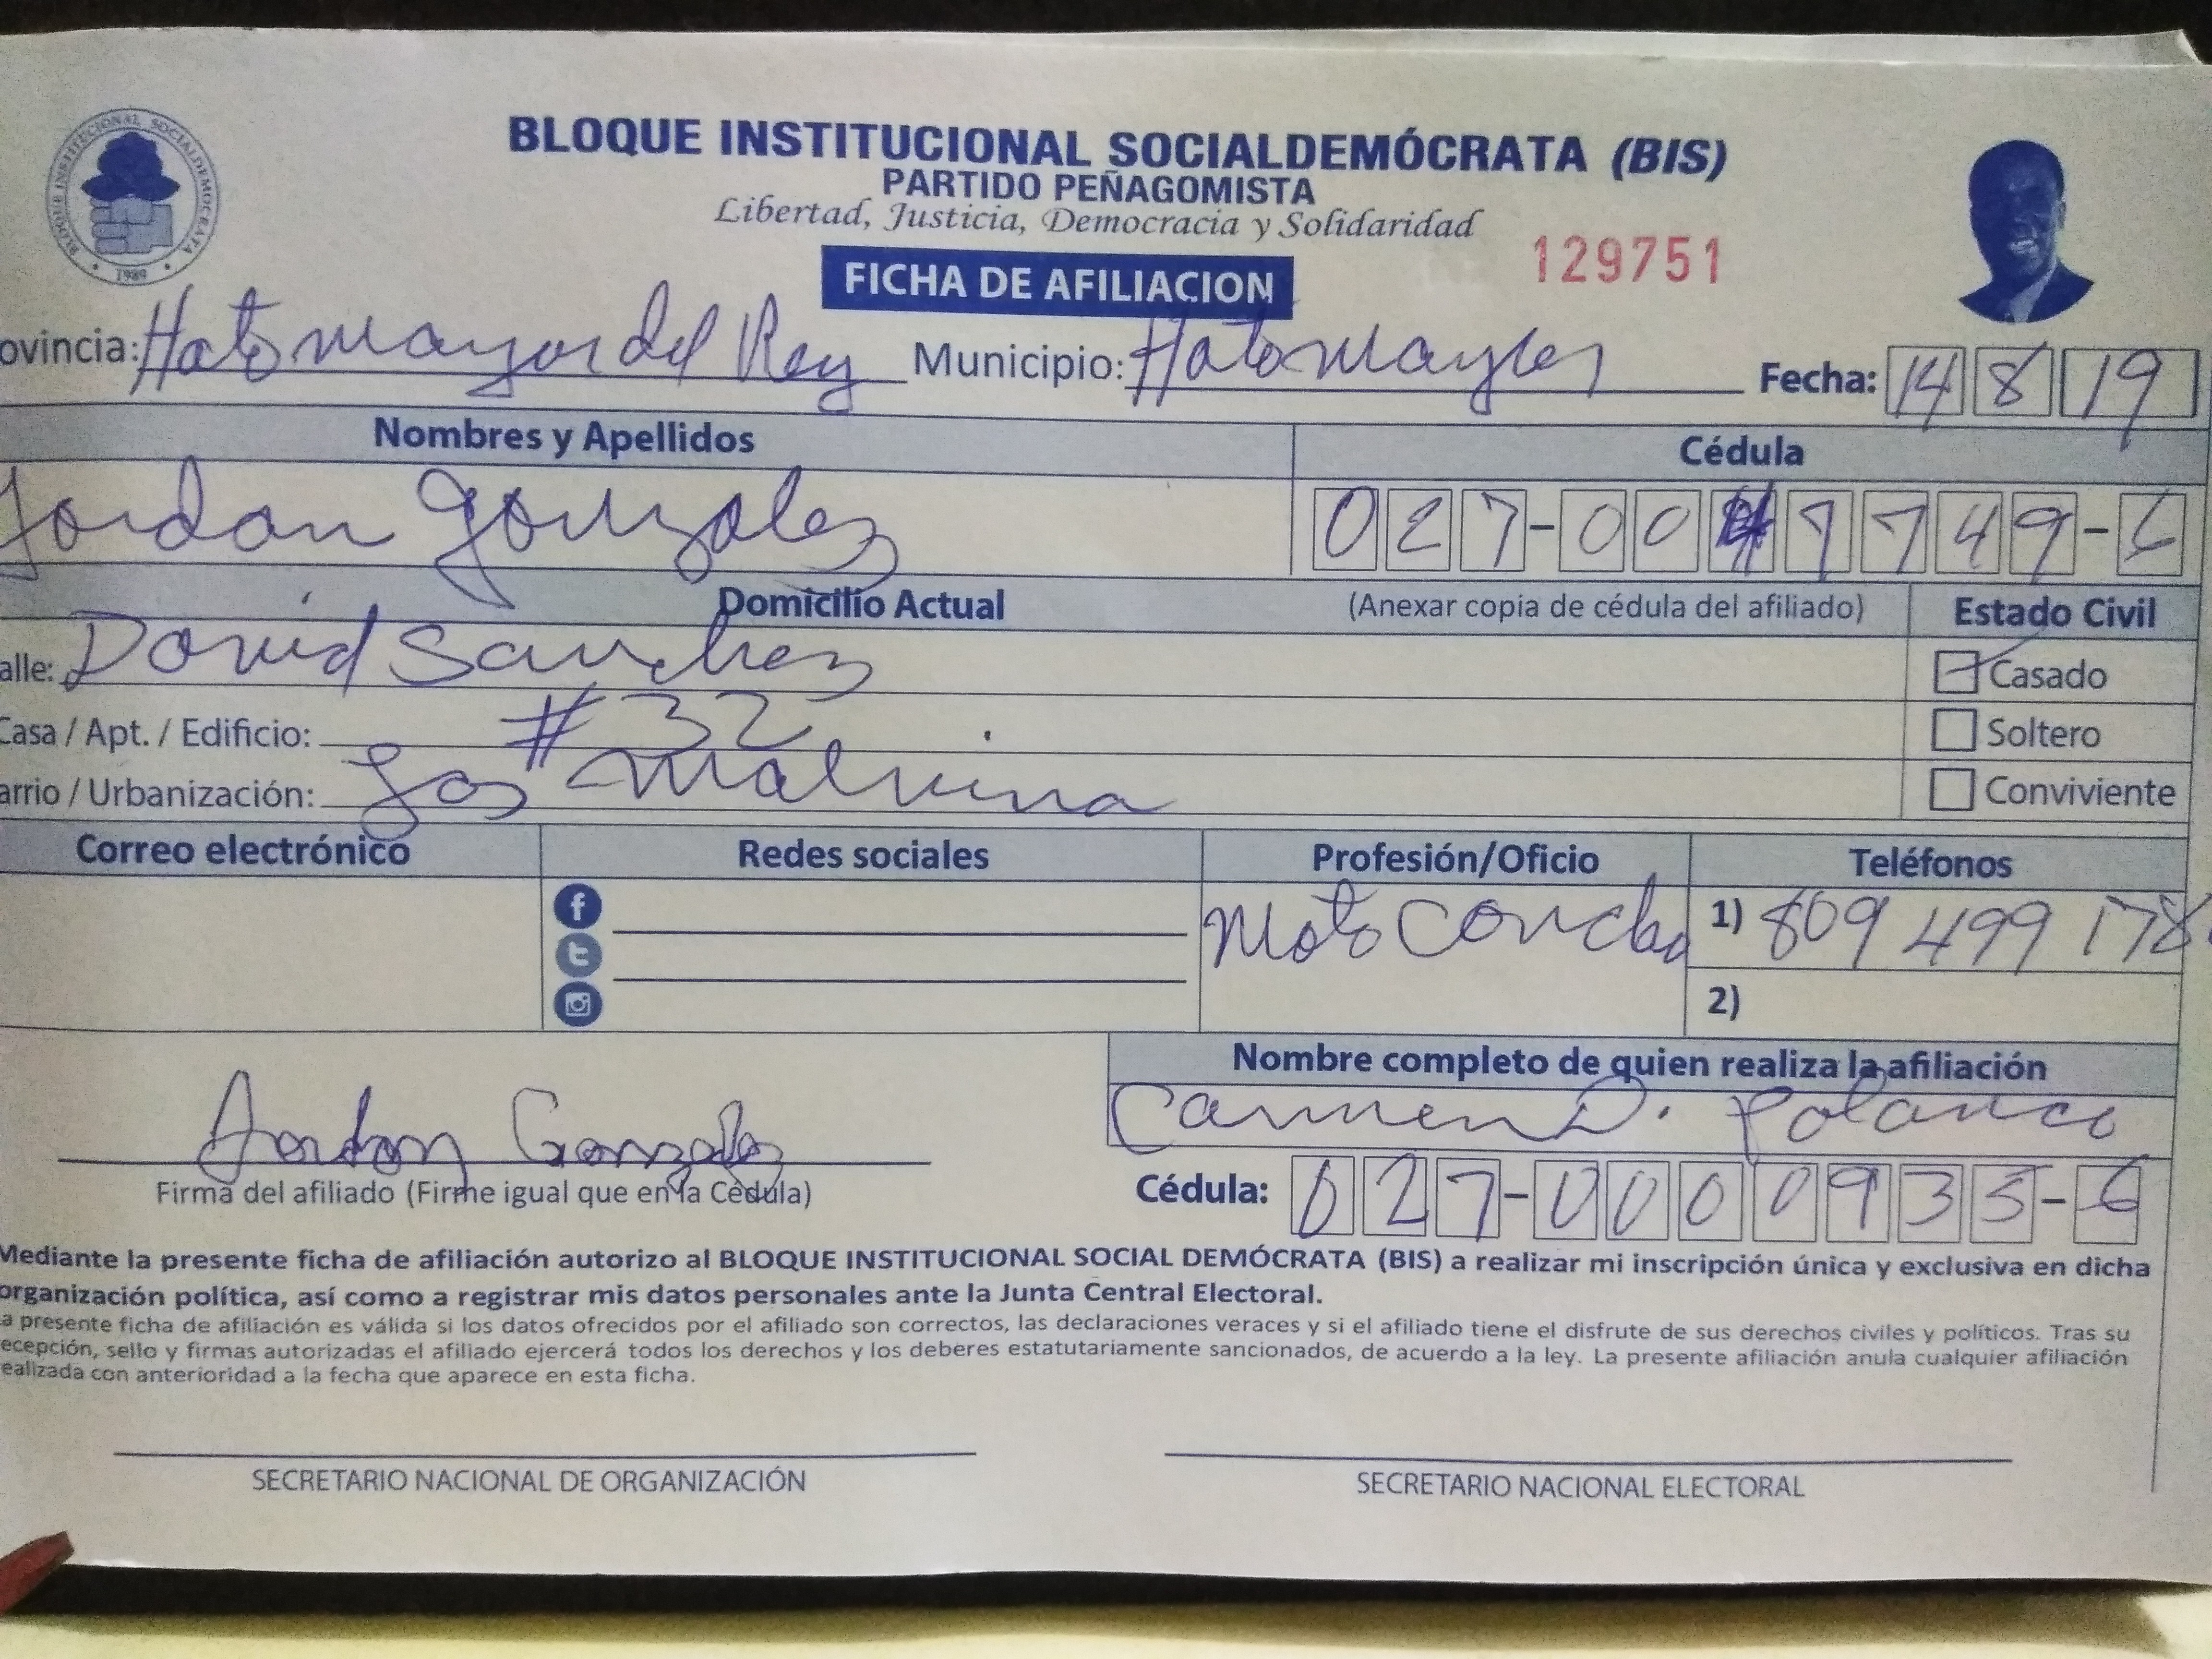 BLOQUE INSTITUCIONAL SOCIALDEMOCRATA
1989
BLOQUE INSTITUCIONAL SOCIALDEMÓCRATA (BIS)
PARTIDO PEÑAGOMISTA
Libertad, Justicia, Democracia y Solidaridad
129751
FICHA DE AFILIACION
ovincia: Hato mayor del Rey Municipio: Hato mayor Fecha: 14 8 19
Nombres y Apellidos Cédula
Jordan Gonzalez 027-00 7749-6
Domicilio Actual (Anexar copia de cédula del afiliado) Estado Civil
alle: David Sanchez Casado
Casa / Apt. / Edificio: # 32 Soltero
arrio / Urbanización: Las Malvina Conviviente
Correo electrónico Redes sociales Profesión/Oficio Teléfonos
Moto Concho 1) 809 499 178
2)
Nombre completo de quien realiza la afiliación
Carmen D. Polanco
Jordan Gonzalez
Firma del afiliado (Firme igual que en la Cédula) Cédula: 027-0000935-6
Mediante la presente ficha de afiliación autorizo al BLOQUE INSTITUCIONAL SOCIAL DEMÓCRATA (BIS) a realizar mi inscripción única y exclusiva en dicha
organización política, así como a registrar mis datos personales ante la Junta Central Electoral.
a presente ficha de afiliación es válida si los datos ofrecidos por el afiliado son correctos, las declaraciones veraces y si el afiliado tiene el disfrute de sus derechos civiles y políticos. Tras su
ecepción, sello y firmas autorizadas el afiliado ejercerá todos los derechos y los deberes estatutariamente sancionados, de acuerdo a la ley. La presente afiliación anula cualquier afiliación
ealizada con anterioridad a la fecha que aparece en esta ficha.
SECRETARIO NACIONAL DE ORGANIZACIÓN SECRETARIO NACIONAL ELECTORAL